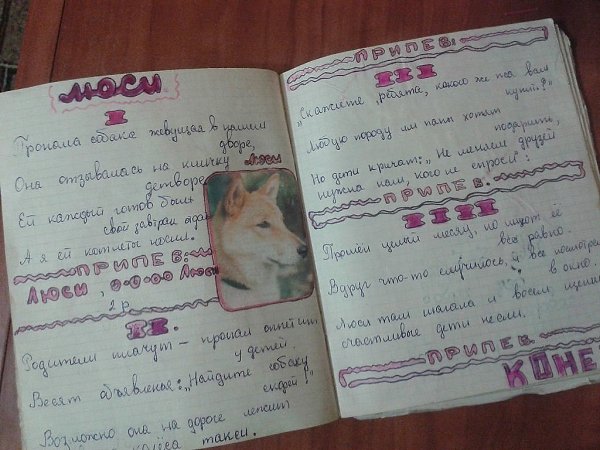 ЛЮСИ
I
Пропала собака жевущая в нашем
дворе,
Она отзывалась на кличку Люси
детворе
Ей каждый готов был
свой завтрак отдать
А я ей котлеты носил.
ПРИПЕВ:
Люси, о-о-о-о Люси
2 р
II.
Родители плачут – пропал аппетит
у детей.
Весят объявленья: „Найдите собаку
скорей!"
Возможно она на дороге лежит
колёса такси.
ПРИПЕВ:
III
„Скажите, ребята, какого же пса вам
купить?"
Любую породу им папы хотят
подарить,
Но дети кричат: „Не меняем друзей
нужна нам, кого не спроси:
ПРИПЕВ.
IIII
Прошёл целый месяц, но ищют её
всё равно.
Вдруг что-то случилось, и все посмотрели
в окно.
Люси там шагала и восем щенят
счастливые дети несли.
ПРИПЕВ
КОНЕ